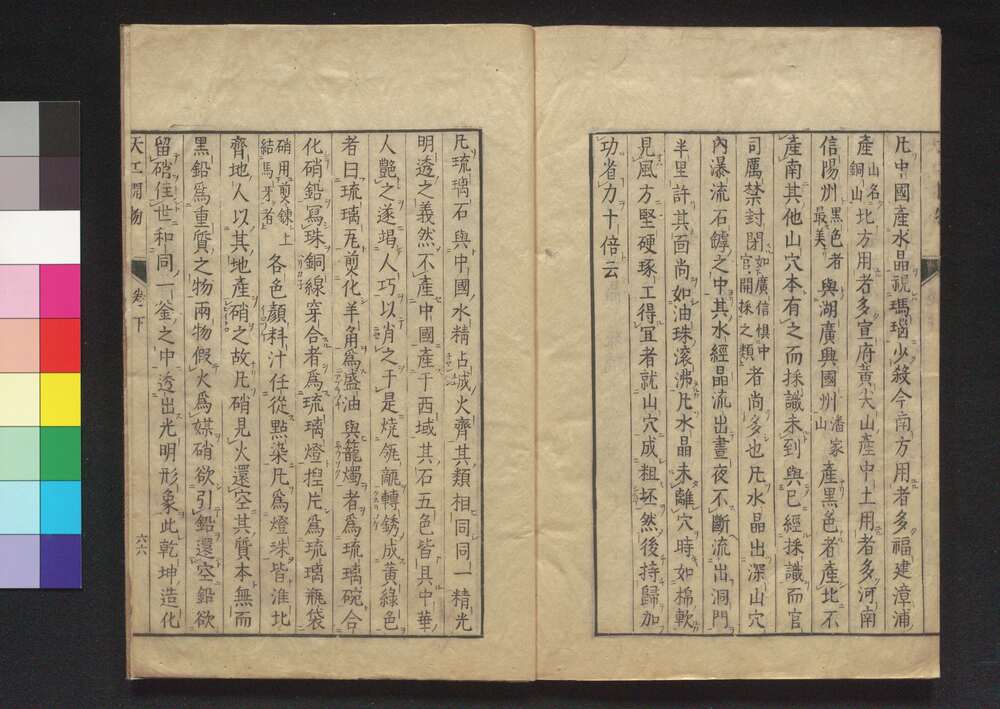 凡中國產水晶視瑪瑙少殺今南方用者多福建漳浦
產山名銅山北方用者多宣府黃尖山產中土用者多河南
信陽州黑色者最美與湖廣興國州潘家山產黑色者產北不
產南其他山穴本有之而採識未到與已經採識而官
司厲禁封閉如廣信懼中官開採之類者尚多也凡水晶出深山穴
內瀑流石罅之中其水經晶流出晝夜不斷流出洞門
半里許其面尚如油珠滾沸凡水晶未離穴時如棉軟
見風方堅硬琢工得宜者就山穴成粗坯然後持歸加
功省力十倍云
凡琉璃石與中國水精占城火齊其類相同同一精光
明透之義然不產中國產于西域其石五色皆具中華
人艷之遂竭人巧以肖之于是燒瓴甋轉銹成黃綠色
者曰琉璃瓦煎化羊角爲盛油與籠燭者爲琉璃碗合
化硝鉛寫珠銅線穿合者爲琉璃燈捏片爲琉璃瓶袋
硝用煎鍊上結馬牙者各色顏料汁任從點染凡爲燈珠皆淮北
齊地人以其地產硝之故凡硝見火還空其質本無而
黑鉛爲重質之物兩物假火爲媒硝欲引鉛還空鉛欲
留硝住世和同一釜之中透出光明形象此乾坤造化
天工開物
卷下
六六